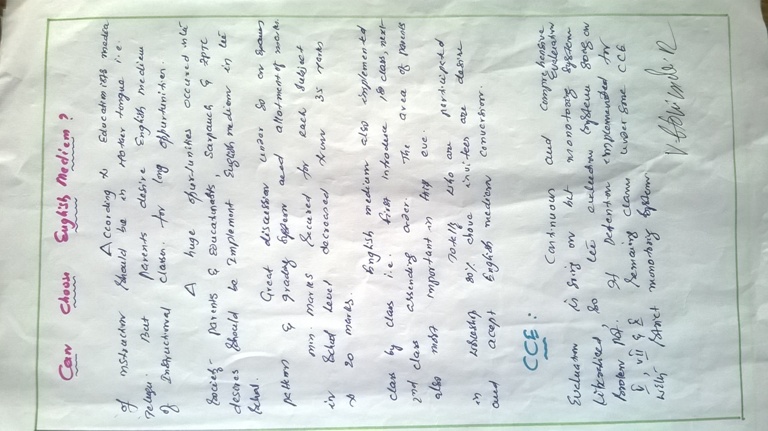 Can Choose English Mediem?
According to Educationists media
of instruction should be in Mother tongue i.e.
Telugu. But Parents desire English medium
of Instructional class. for long opportunities.
A huge opurtunities occured into
Society - parents & Educationalts, Sarpanch & ZPTC
desires should be Implement English medium in the
School.
Great discussion under so on
pattern & grading System and allotment of marks.
min. marks secured for each subject
in School level decreased from 35 marks
to 20 marks
English medium also implemented
class by class i.e. first Introduce 1st class, next
2nd class assending order. The area of parents
also most important in this eve.
Totally who are perticipeted
in 80% above invitees are desire
and acept English medium conversion.
CCE:
Continuous and comprehensive
Evaluation is going on but monotoring system
so the evaluation system going on
If Detention implemented for
remaining classes under some CCE
with strict monotoring system.